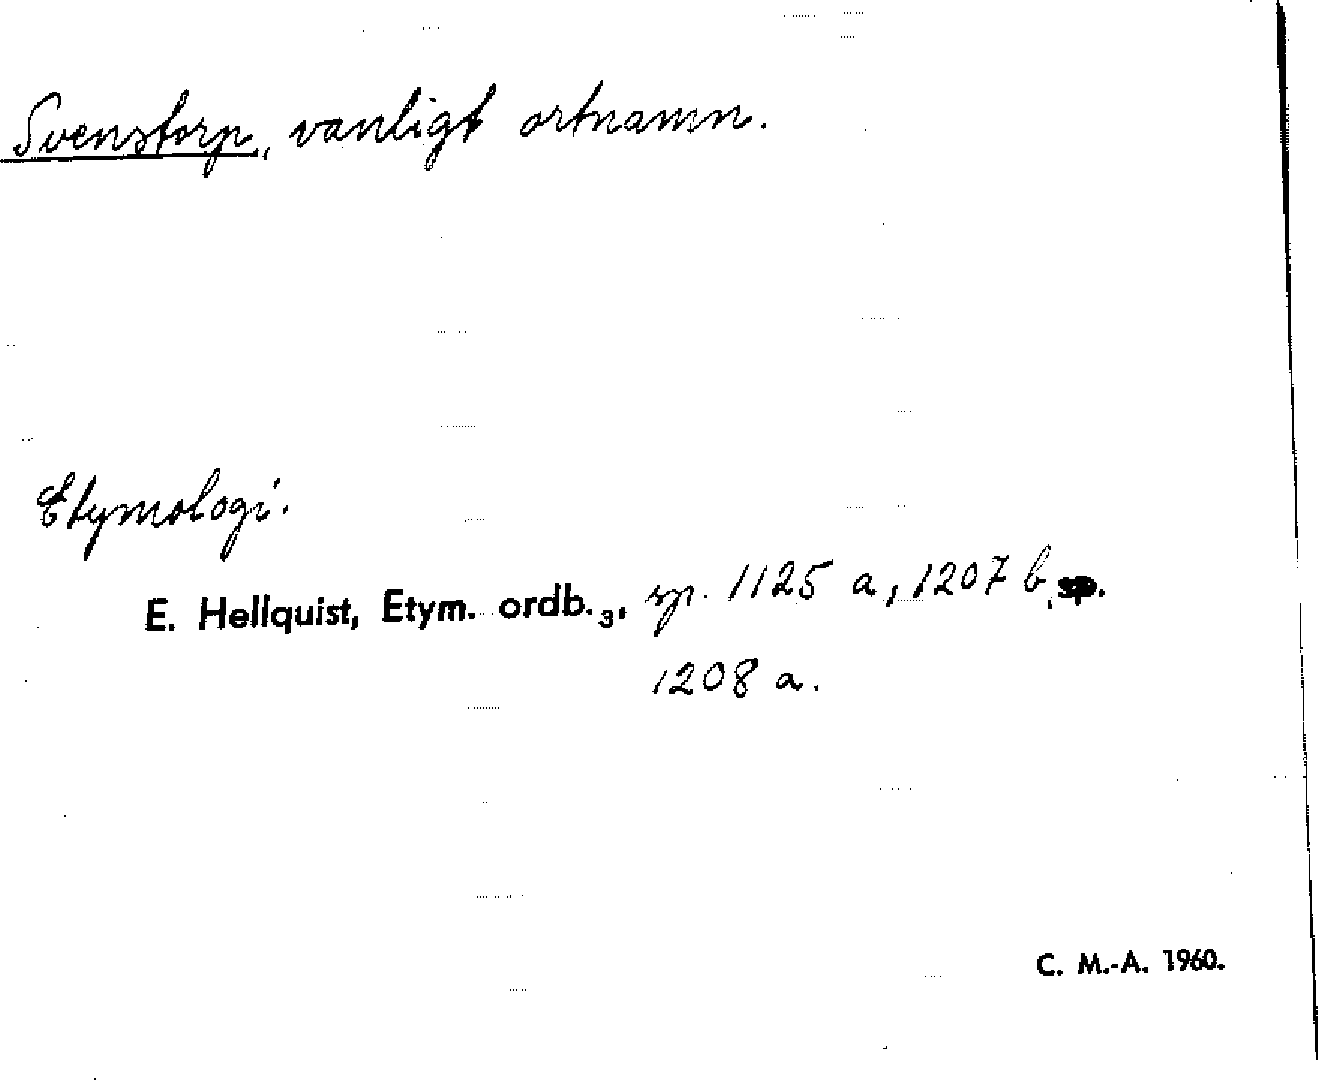 Svenstorp, vanligt ortnamn.
Etymologi.
E. Hellquist, Etym. ordb.3, sp. 1125 a, 1207 b, sp.
1208 a.
C. M.-A. 1960.